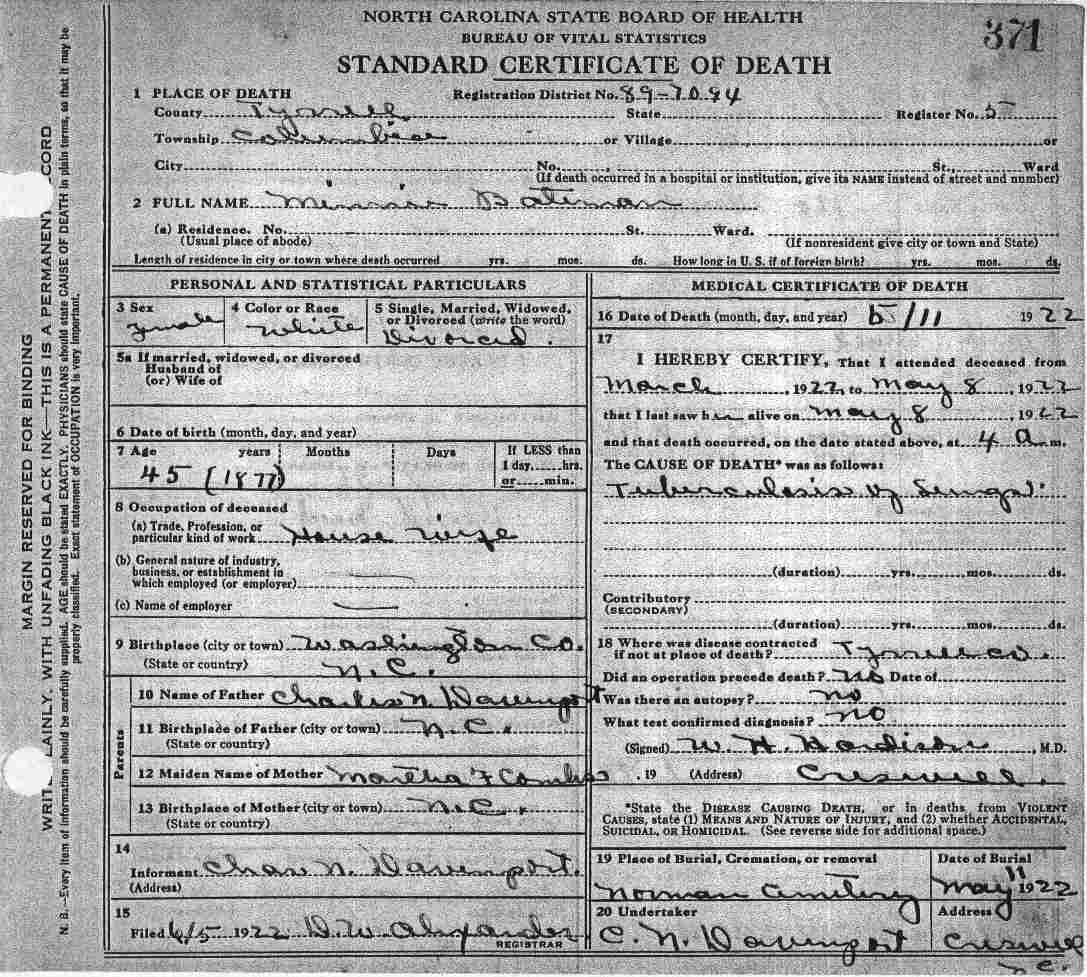 NORTH CAROLINA STATE BOARD OF HEALTH
371
BUREAU OF VITAL STATISTICS
STANDARD CERTIFICATE OF DEATH
1 PLACE OF DEATH Registration District No. 89-7094
County Tyrrell State Register No. 5
Township Columbia or Village or
City No. , St., Ward
(If death occurred in a hospital or institution, give its NAME instead of street and number)
2 FULL NAME Minnie Bateman
(a) Residence. No. St. Ward.
(Usual place of abode) (If nonresident give city or town and State)
Length of residence in city or town where death occurred yrs. mos. ds. How long in U. S. if of foreign birth? yrs. mos. ds.
PERSONAL AND STATISTICAL PARTICULARS
3 Sex Female
4 Color or Race White
5 Single, Married, Widowed, or Divorced (write the word)
Divorced.
5a If married, widowed, or divorced
Husband of
(or) Wife of
6 Date of birth (month, day, and year)
7 Age years Months Days If LESS than
1 day hrs.
or min.
45 (1877)
8 Occupation of deceased
(a) Trade, Profession, or
particular kind of work House wife
(b) General nature of industry,
business, or establishment in
which employed (or employer)
(c) Name of employer
9 Birthplace (city or town) Washington Co.
(State or country) N.C.
Parents
10 Name of Father Charles N Davenport
11 Birthplace of Father (city or town) N.C.
(State or country)
12 Maiden Name of Mother Martha F Combs
13 Birthplace of Mother (city or town) N.C.
(State or country)
14
Informant Chas N. Davenport.
(Address)
15
Filed 6/5 1922 D. W. Alexander
REGISTRAR
MEDICAL CERTIFICATE OF DEATH
16 Date of Death (month, day, and year) 5/11 1922
17
I HEREBY CERTIFY, That I attended deceased from
March , 1922, to May 8 , 1922
that I last saw her alive on May 8 1922
and that death occurred, on the date stated above, at 4 a.m.
The CAUSE OF DEATH* was as follows:
Tuberculosis of Lungs.
(duration) yrs. mos. ds.
Contributory
(SECONDARY)
(duration) yrs. mos. ds.
18 Where was disease contracted
if not at place of death? Tyrrell co.
Did an operation precede death? no Date of
Was there an autopsy? no
What test confirmed diagnosis? no
(Signed) W. H. Hardison , M.D.
, 19 (Address) Creswell.
*State the DISEASE CAUSING DEATH, or in deaths from VIOLENT
CAUSES, state (1) MEANS AND NATURE OF INJURY, and (2) whether ACCIDENTAL,
SUICIDAL, OR HOMICIDAL. (See reverse side for additional space.)
19 Place of Burial, Cremation, or removal Date of Burial
Norman Cemetery May 11 1922
20 Undertaker Address
C. N. Davenport Creswell
MARGIN RESERVED FOR BINDING
LAINLY, WITH UNFADING BLACK INK—THIS IS A PERMANENT
N. B.—Every item of information should be carefully supplied. AGE should be stated EXACTLY. PHYSICIANS should state CAUSE OF DEATH in plain terms, so that it may be
properly classified. Exact statement of OCCUPATION is very important.